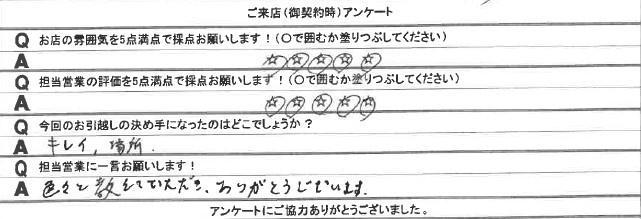 ご来店(御契約時)アンケート
Q お店の雰囲気を5点満点で採点お願いします!(〇で囲むか塗りつぶしてください)
A ☆☆☆☆☆
Q 担当営業の評価を5点満点で採点お願いします!(〇で囲むか塗りつぶしてください)
A ☆☆☆☆☆
Q 今回のお引越しの決め手になったのはどこでしょうか?
A キレイ、場所
Q 担当営業に一言お願いします!
A 色々と教えていただき、ありがとうございます。
アンケートにご協力ありがとうございました。